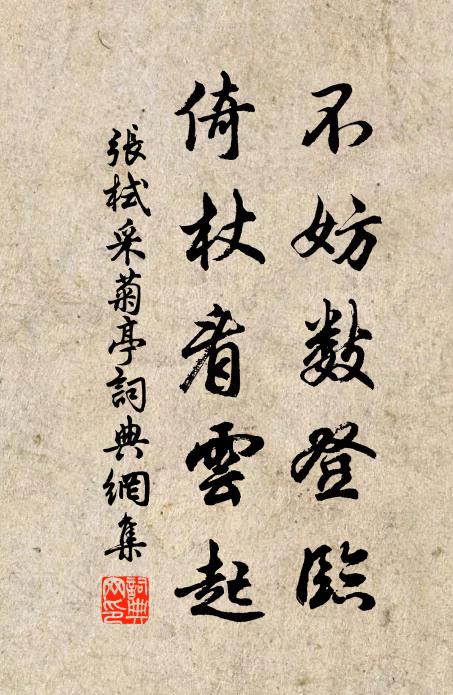 不妨數登臨
倚杖看雲起
張栻采菊亭詞典網集
詞典网印